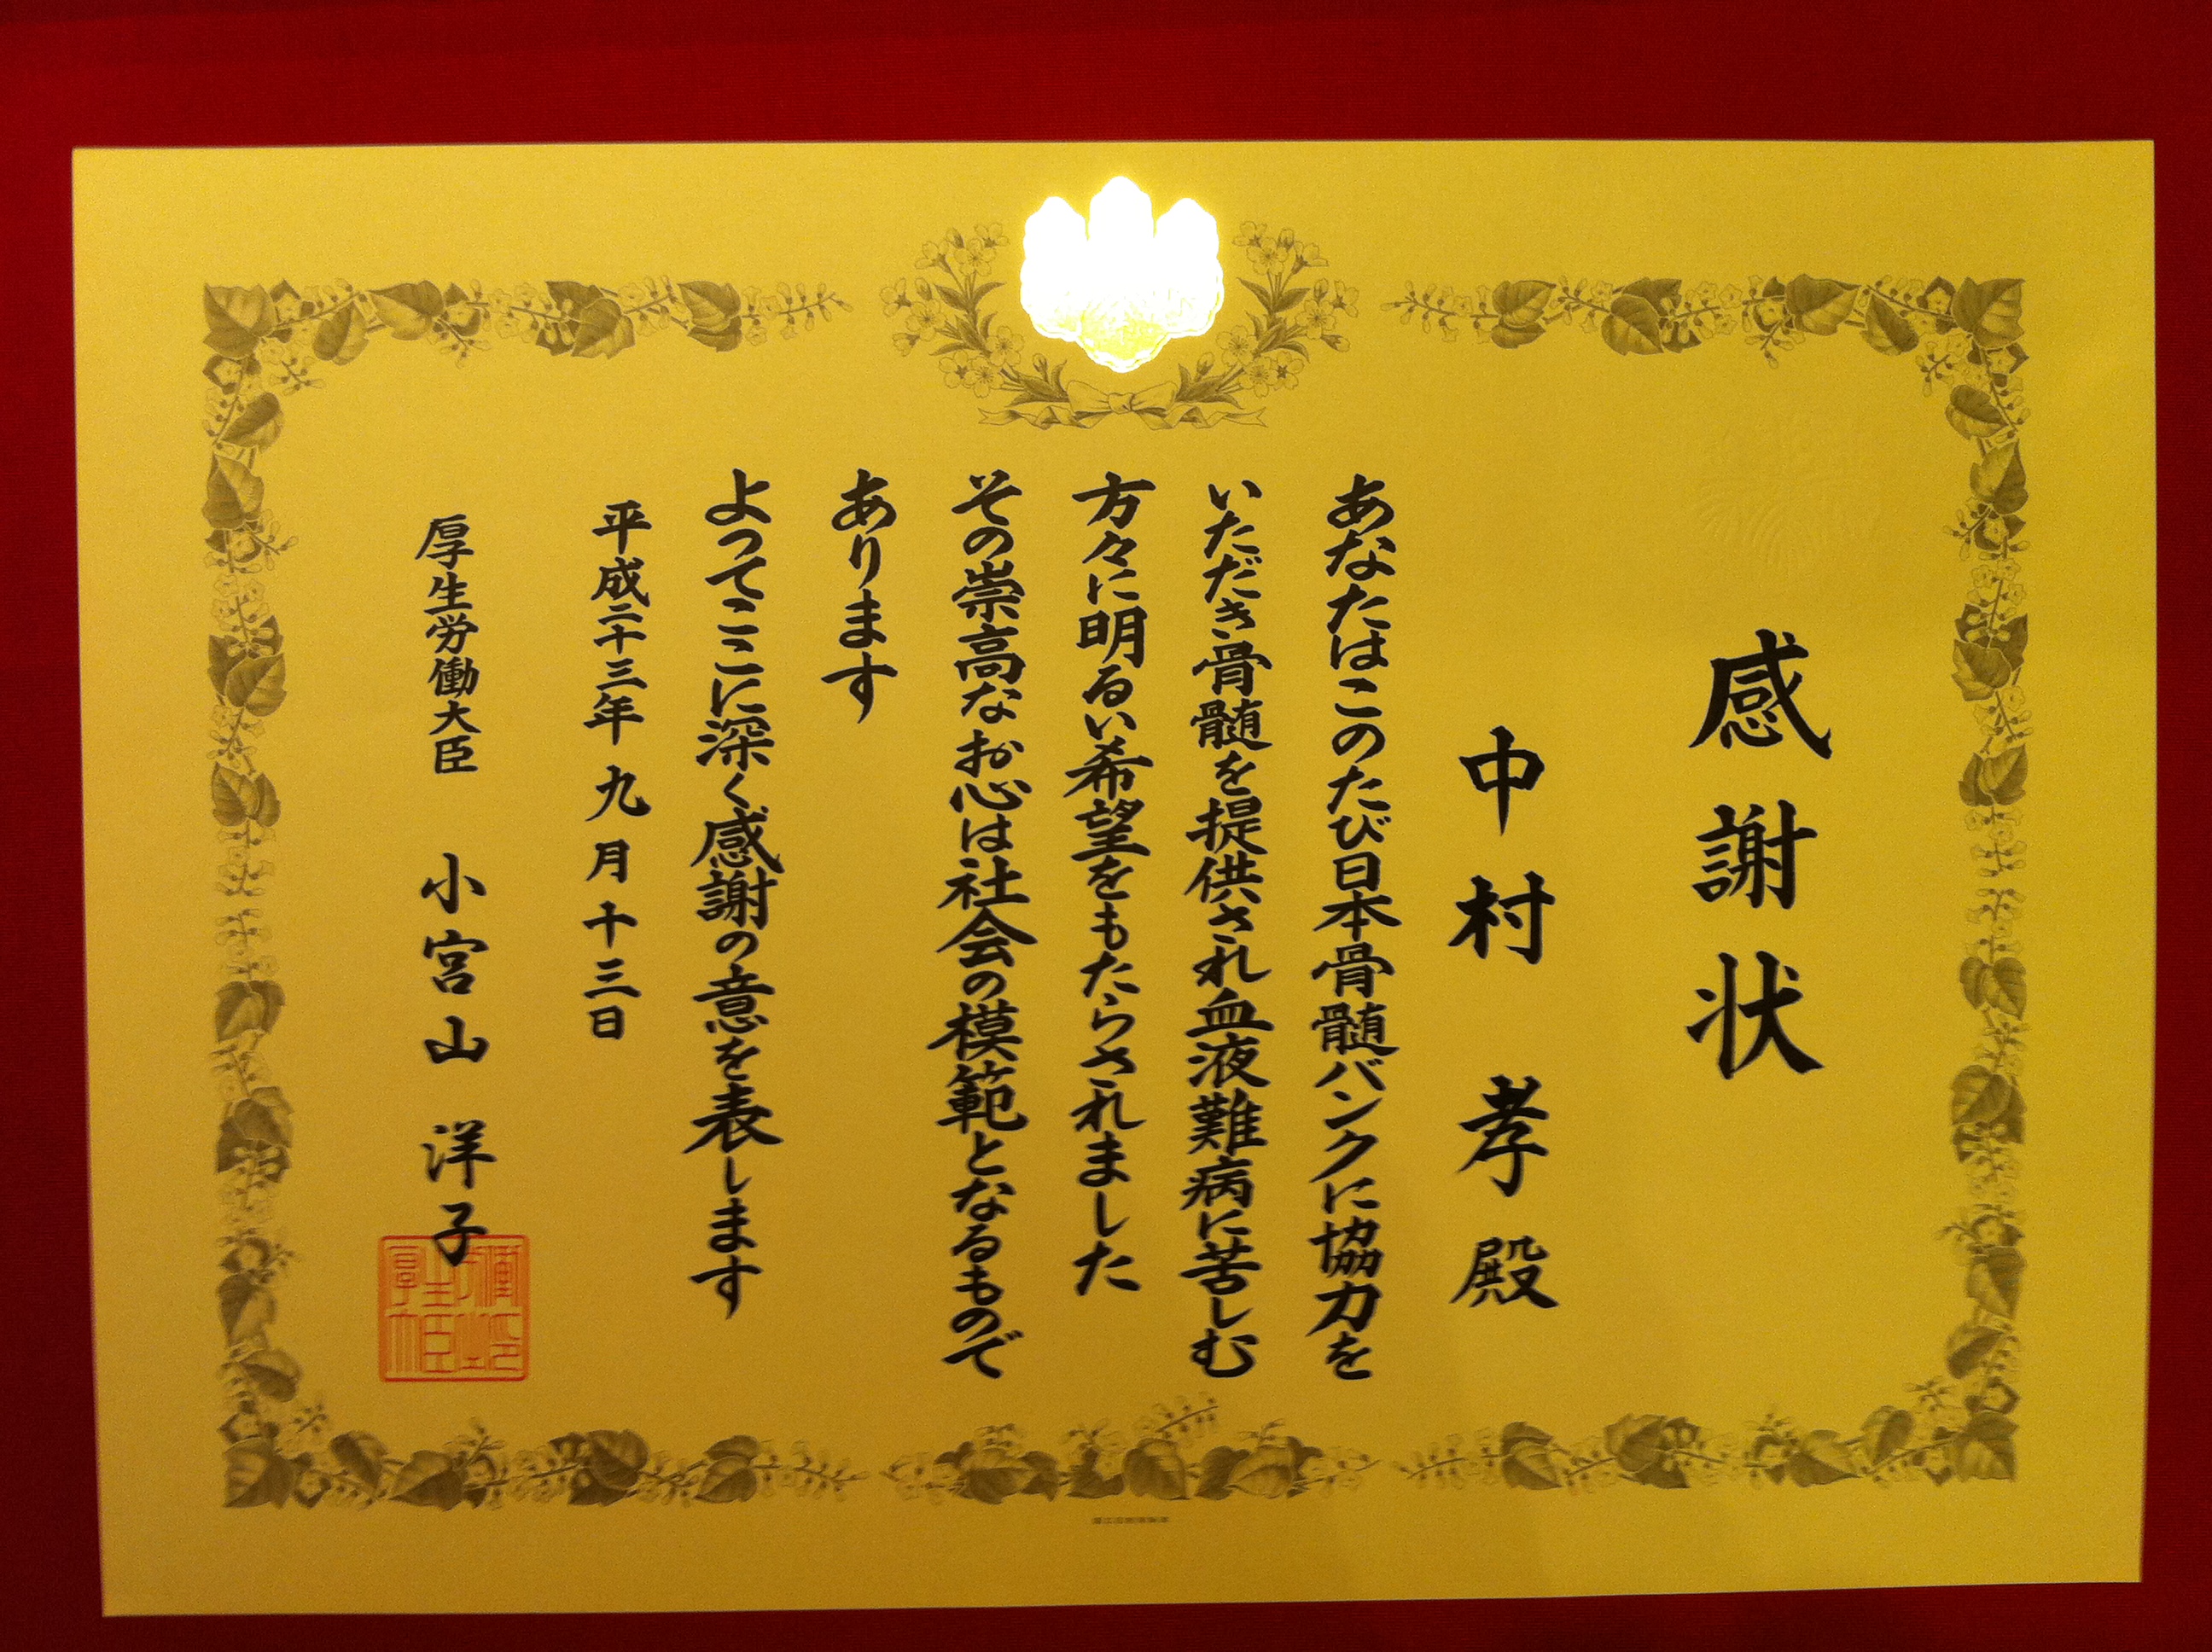 感謝状
中村 孝 殿
あなたはこのたび日本骨髄バンクに協力を
いただき骨髄を提供され血液難病に苦しむ
方々に明るい希望をもたらされました
その崇高なお心は社会の模範となるもので
あります
よってここに深く感謝の意を表します
平成二十三年九月十三日
厚生労働大臣 小宮山 洋子